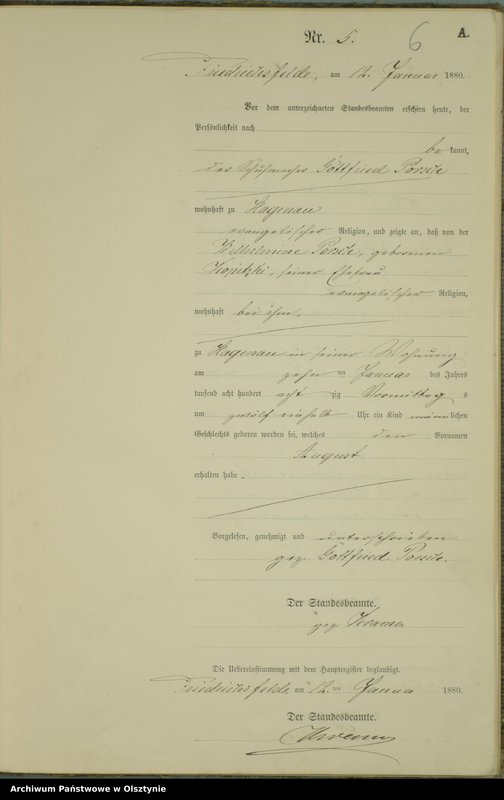 Nr. 5.
6
A.
Friedrichsfelde, am 12. Januar 1880.
Vor dem unterzeichneten Standesbeamten erschien heute, der
Persönlichkeit nach
be kannt,
der Schuhmacher Gottfried
wohnhaft zu Hagenau
evangelischer Religion, und zeigte an, daß von der
Wilhelmine geborenen
seiner Ehefrau
evangelischer Religion,
wohnhaft bei ihm,
zu Hagenau in seiner Wohnung
am zehn ten Januar des Jahres
tausend acht hundert acht zig Vormittag s
um zwölf einhalb Uhr ein Kind männlichen
Geschlechts geboren worden sei, welches den Vornamen
August
erhalten habe.
Vorgelesen, genehmigt und unterschrieben
gez. Gottfried
Der Standesbeamte.
gez.
Die Uebereinstimmung mit dem Hauptregister beglaubigt.
Friedrichsfelde am 12 ten Janua 1880.
Der Standesbeamte.
Archiwum Państwowe w Olsztynie